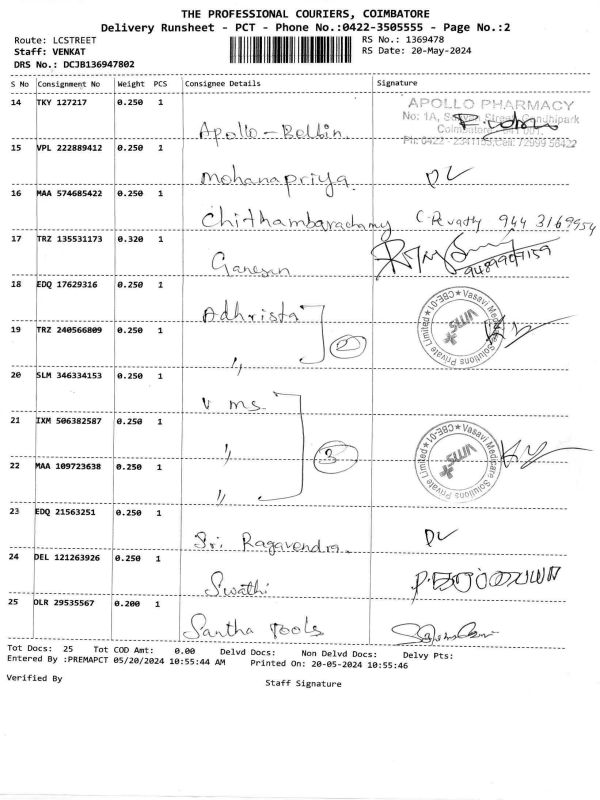 THE PROFESSIONAL COURIERS, COIMBATORE
Delivery Runsheet - PCT - Phone No.:0422-3505555 - Page No.:2
Route: LCSTREET RS No.: 1369478
Staff: VENKAT RS Date: 20-May-2024
DRS No.: DCJB136947802
S No Consignment No Weight PCS Consignee Details Signature
14 TKY 127217 0.250 1 Apollo - Bolbin APOLLO PHARMACY
No: 1A, Street, Gandhipark
15 VPL 222889412 0.250 1 Mohanapriya DL
16 MAA 574685422 0.250 1 Chithambarachamy C. Revathy 944 3169954
17 TRZ 135531173 0.320 1 Ganesan 9489907159
18 EDQ 17629316 0.250 1 Adhrista Vasavi Medicare Solutions Private Limited CBE-01 VMS
19 TRZ 240566809 0.250 1 " 2
20 SLM 346334153 0.250 1 V ms
21 IXM 506382587 0.250 1 " 3 Vasavi Medicare Solutions Private Limited CBE-01 VMS
22 MAA 109723638 0.250 1 "
23 EDQ 21563251 0.250 1 Sri Ragavendra DL
24 DEL 121263926 0.250 1 Swathi
25 DLR 29535567 0.200 1 Santha Tools
Tot Docs: 25 Tot COD Amt: 0.00 Delvd Docs: Non Delvd Docs: Delvy Pts:
Entered By :PREMAPCT 05/20/2024 10:55:44 AM Printed On: 20-05-2024 10:55:46
Verified By Staff Signature